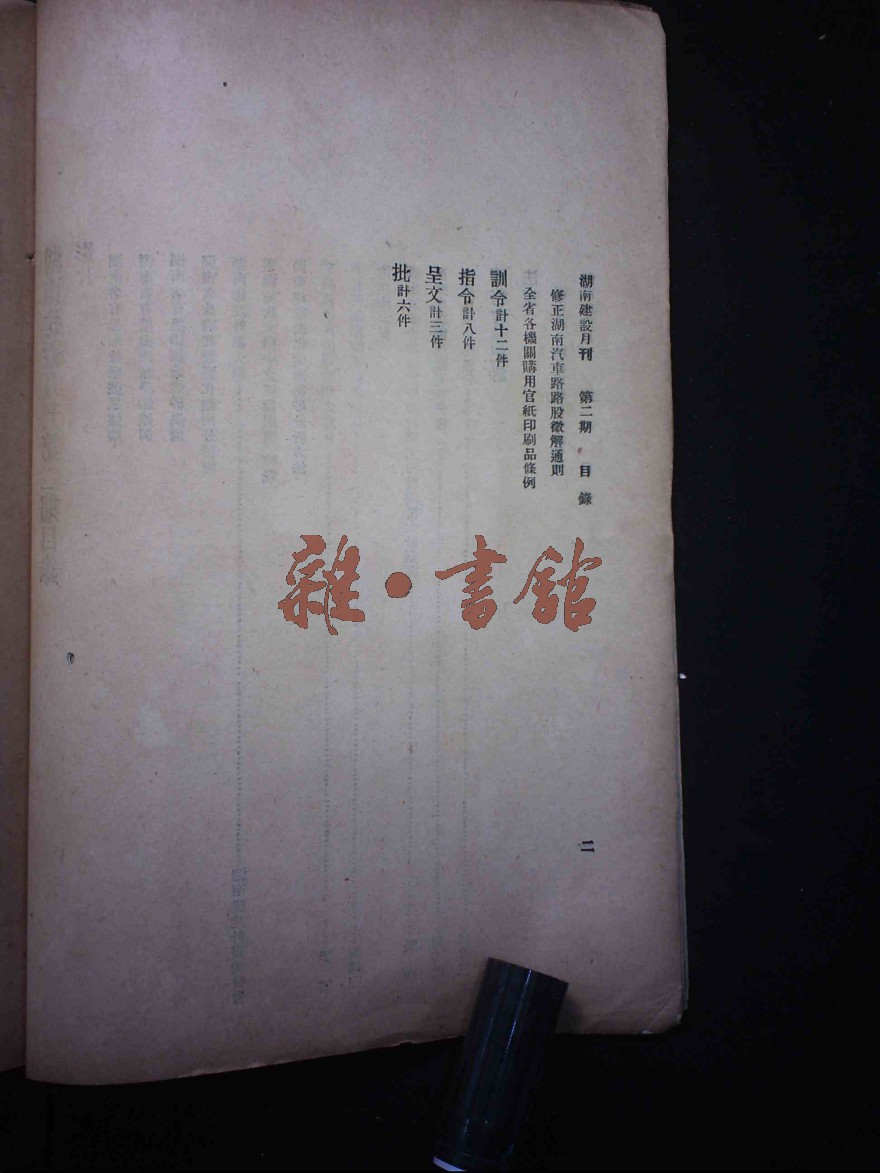 湖南建設月刊 第二期 目錄 二
修正湖南汽車路路股徵解通則
全省各機關購用官紙印刷品條例
訓令計十二件
指令計八件
呈文計三件
批計六件
雜·書館